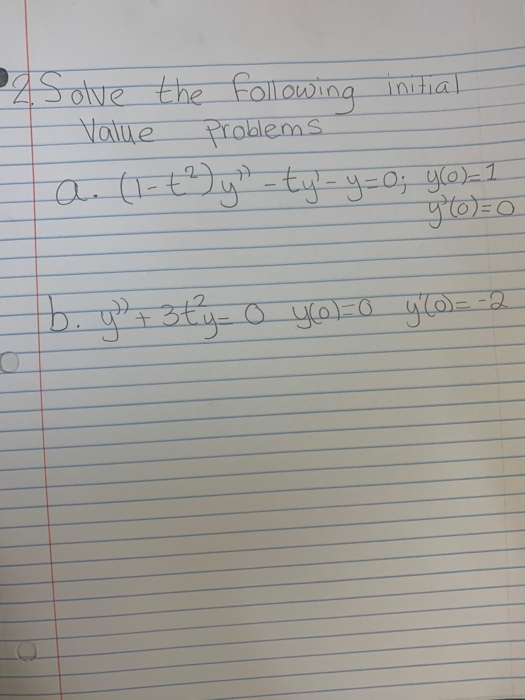 2. Solve the following initial
Value problems
a. (1-t²)y'' - ty' - y=0; y(0)=1
y'(0)=0
b. y'' + 3t²y= 0 y(0)=0 y'(0)= -2